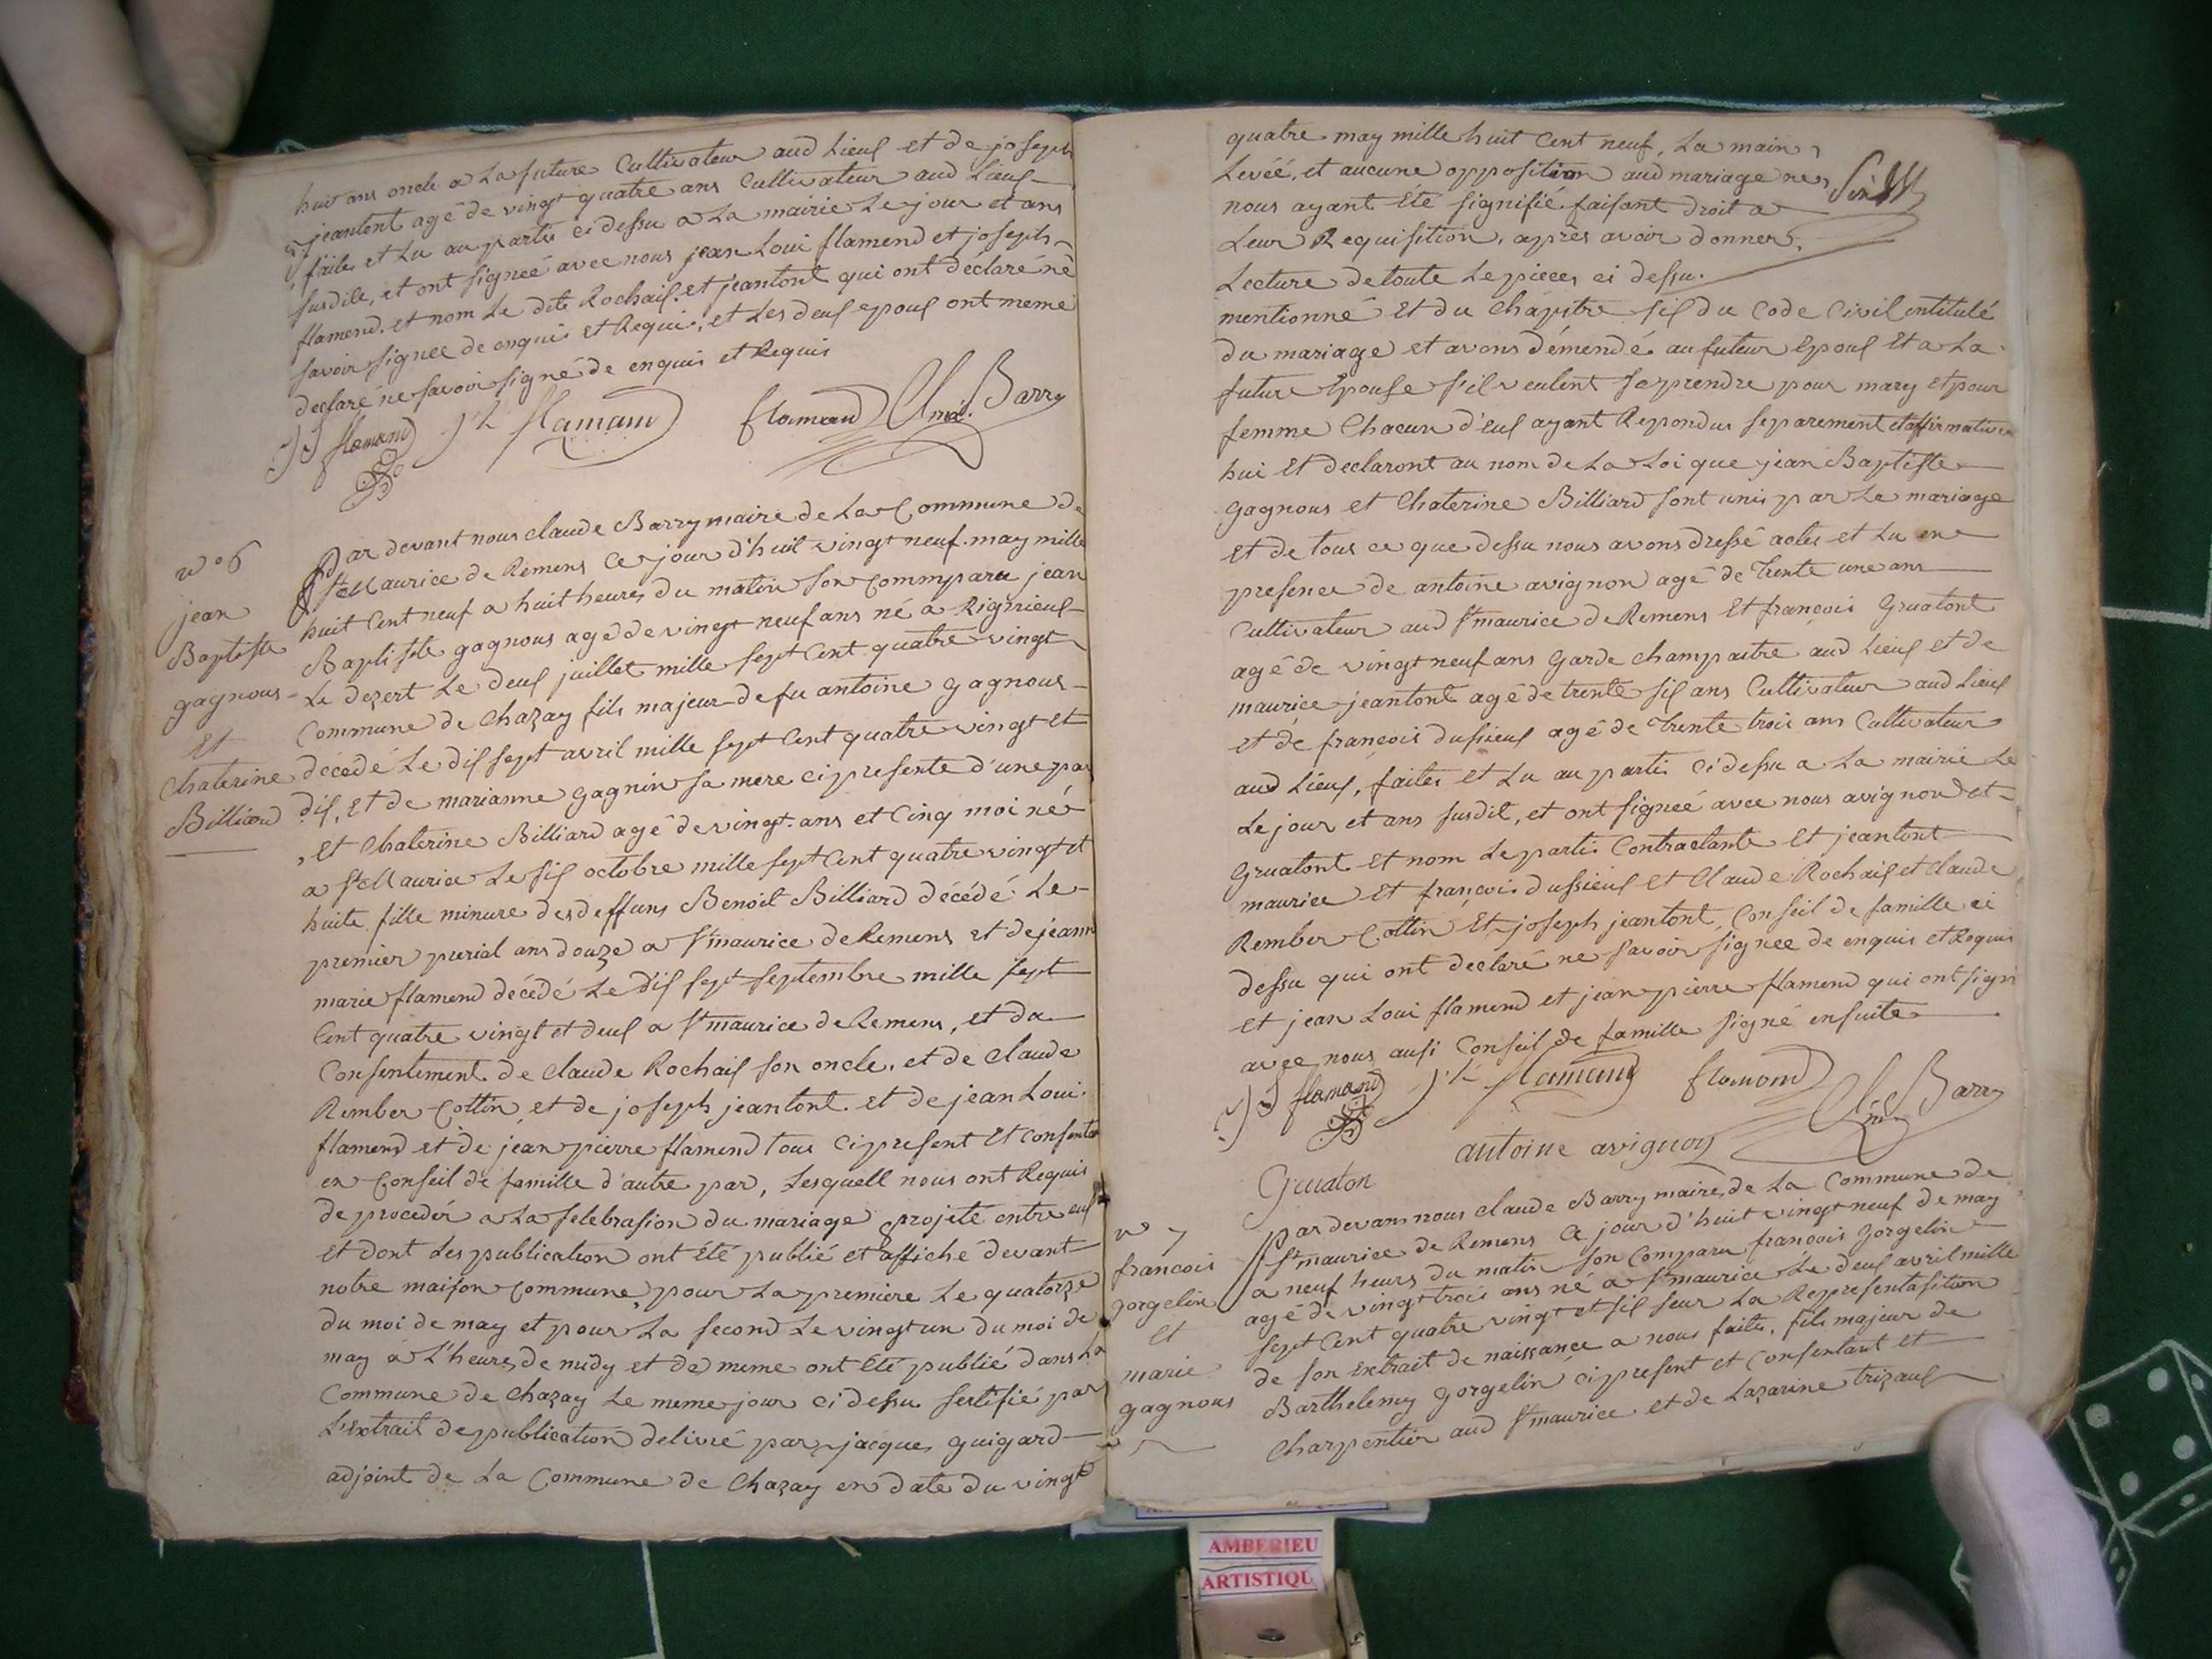 huit ans oncle a La future Cultivateur aud Lieux et de joseph
jeantont agé de vingt quatre ans Cultivateur aud Lieux
faites et Lu au partis ci dessu a La mairie Le jour et ans
susdite, et ont signeé avec nous jean Loui flamend et joseph
flamend. et nom Le dite Rochaix. et jeantont qui ont déclaré né
savoir signeé de enquis et Requis, et Les deux epoux ont meme
declaré ne savoir signé de enquis et Requis
JJ flamand jh flamand flamand Cl Barry
mre.
n° 6
jean
Baptiste
gagnous
et
Chaterine
Billiard
Par devant nous claude Barry maire de La Commune de
St Maurice de Remens Ce jour d'huit vingt neuf. may mille
huit Cent neuf a huit heures du matin son Comparu jean
Baptiste gagnous agé de vingt neuf ans né a Rignieux
Le dezert Le deux juillet mille sept Cent quatre vingt
Commune de Chazay fils majeur de fu antoine gagnous
décedé Le dix sept avril mille sept Cent quatre vingt et
dix, Et de marianne gagnin sa mere ci presente d'une par
, Et Chaterine Billiard agé de vingt. ans et Cinq moi né
a St Maurice Le six octobre mille sept Cent quatre vingt et
huite fille minure des deffuns Benoit Billiard décédé Le
premier prerial ans douze a St maurice de Remens et de jeanne
marie flamend décédé Le dix sept septembre mille sept
Cent quatre vingt et deux a St maurice de Remens, et du
Consentement de Claude Rochaix son oncle. et de Claude
Rember Cottin et de joseph jeantont. et de jean Loui.
flamend et de jean pierre flamend tous ci present et Consentant
en Conseil de famille d'autre par, Lesquell nous ont Requis
de proceder a La selebrasion du mariage projeté entre eux
et dont Les publication ont été publié et affiché devant
notre maison Commune, pour La premiere Le quatorze
du moi de may et pour La second Le vingt un du moi de
may a L'heure, de midy et de meme ont été publié dans La
Commune de Chazay Le meme jour ci dessu sertifié par
L'extrait de publication delivré par jacques guigard
adjoint de La Commune de Chazay en date du vingt
quatre may mille huit Cent neuf, La main
Levéé, et aucune opposition aud mariage ne
nous ayant été signifié. faisant droit a
Leur Requisition. après avoir donner.
Lecture de toute Le pieces ci dessu.
mentionné et du Chapitre six du Code Civil intitulé
du mariage et avons démendé au futeur Epoux Et a La
future Epouse s'il veulent se prendre pour mary et pour
femme Chacun d'eux ayant Repondus separement et affirmative
hui et declaront au nom de La Loi que jean Baptiste
gagnous et Chaterine Billiard sont unis par Le mariage
et de tous ce que dessu nous avons dressé actes et Lu en
presence de antoine avignon agé de trente une ans
Cultivateur aud St maurice de Remens Et françois gruatont
agé de vingt neuf ans garde champaitre aud Lieux et de
maurice jeantont agé de trente six ans Cultivateur aud Lieux
et de françois dusieux agé de trente trois ans Cultivateur
aud Lieux, faites et Lu au partis ci dessu a La mairie Le
Le jour et ans susdit, et ont signeé avec nous avignon et
gruatont et nom Le partis Contractante et jeantont
maurice et françois dussieux et Claude Rochaix et Claude
Rember Cottin Et joseph jeantont, Conseil de famille ci
dessu qui ont declaré ne savoir signeé de enquis et Requis
et jean Loui flamend et jean pierre flamend qui ont sign
avec nous ausi Conseil de famille signé ensuite
JJ flamand jh flamand flamond Cl Barry
mre
antoine avignon
Gruaton
n° 7
francois
gorgelin
et
marie
gagnous
par devant nous claude Barry maire de La Commune de
St maurice de Remens Ce jour d'huit vingt neuf de may
a neuf heurs du matin son Comparu francois gorgelin
agé de vingt trois ans né a St maurice Le deux avril mille
sept Cent quatre vingt et six seur La Representasition
de son extrait de naissance a nous faite, fils majeur de
Barthelemy gorgelin ci present et Consentant et
Charpentier aud St maurice et de Lazarine trizaux
AMBERIEU
ARTISTIQU